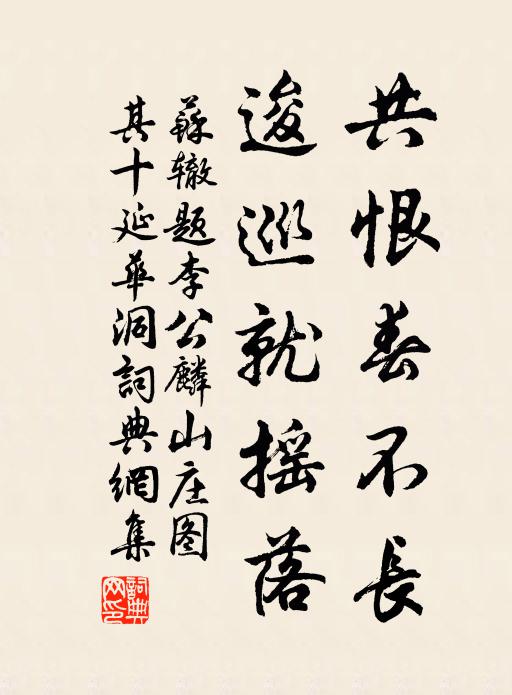 共恨春不長
逡巡就摇落
蘇辙题李公麟山庄图
其十延華洞詞典網集
詞典網印